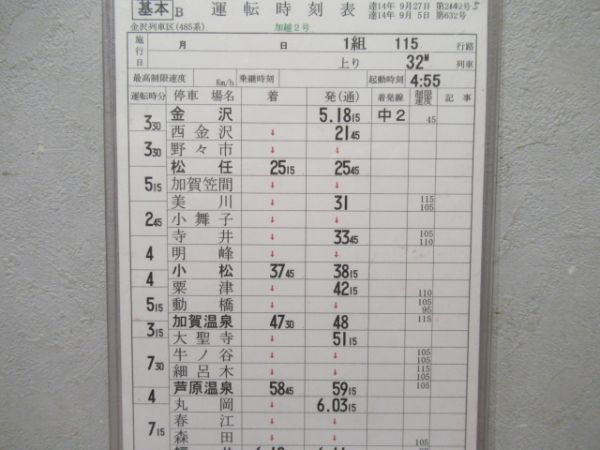 基本 B 運転時刻表 達14年 9月27日 第2442号
達14年 9月 5日 第632号
金沢列車区(485系) 加越2号
施行日 月 日 1組 115 行路
上り 32M 列車
最高制限速度 Km/h 乗継時刻 起動時刻 4:55
運転時分 停車場名 着 発(通) 着発線 制限速度 記事
金沢 5.18 15 中2 45
3 30 西金沢 ↓ 21 45
野々市 ↓ ↓
3 30 松任 25 15 25 45
加賀笠間 ↓ ↓
5 15 美川 ↓ 31 115 105
小舞子 ↓ ↓
2 45 寺井 ↓ 33 45 105 110
明峰 ↓ ↓
4 小松 37 45 38 15
4 粟津 ↓ 42 15 110
動橋 ↓ ↓ 105 95
5 15 加賀温泉 47 30 48 115
3 15 大聖寺 ↓ 51 15
牛ノ谷 ↓ ↓ 105 105
7 30 細呂木 ↓ ↓ 115 105
芦原温泉 58 45 59 15 105
4 丸岡 ↓ 6.03 15
春江 ↓ ↓
7 15 森田 ↓ ↓ 105